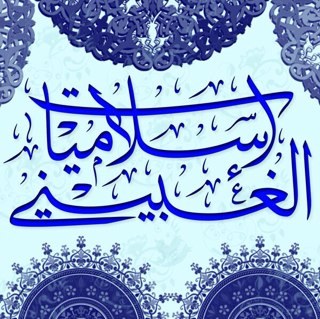 إسلاميات
الغبيني